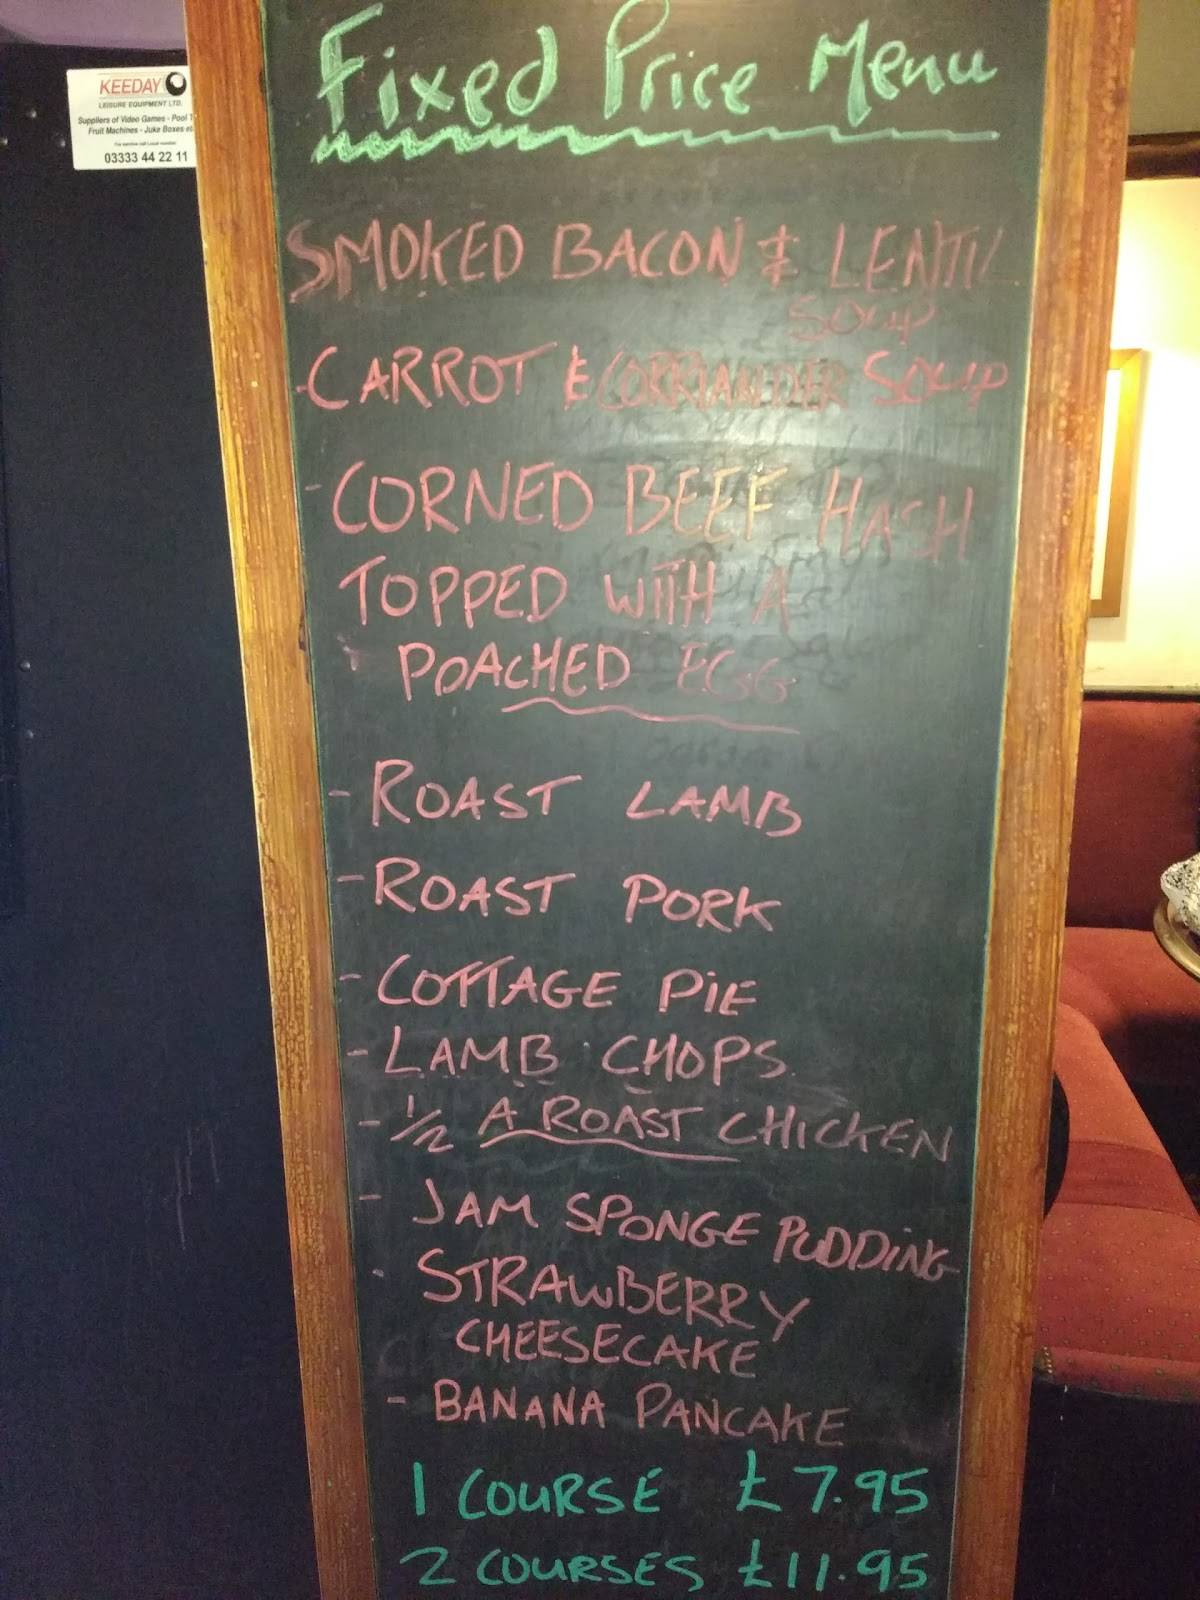 KEEDAY
LEISURE EQUIPMENT LTD.
Suppliers of Video Games - Pool
Fruit Machines - Juke Boxes
03333 44 22 11
Fixed Price Menu
SMOKED BACON & LENTIL
SOUP
- CARROT & CORRIANDER SOUP
- CORNED BEEF HASH
TOPPED WITH A
POACHED EGG
- ROAST LAMB
- ROAST PORK
- COTTAGE PIE
- LAMB CHOPS.
- 1/2 A ROAST CHICKEN
- JAM SPONGE PUDDING
- STRAWBERRY
CHEESECAKE
- BANANA PANCAKE
1 COURSE £7.95
2 COURSES £11.95